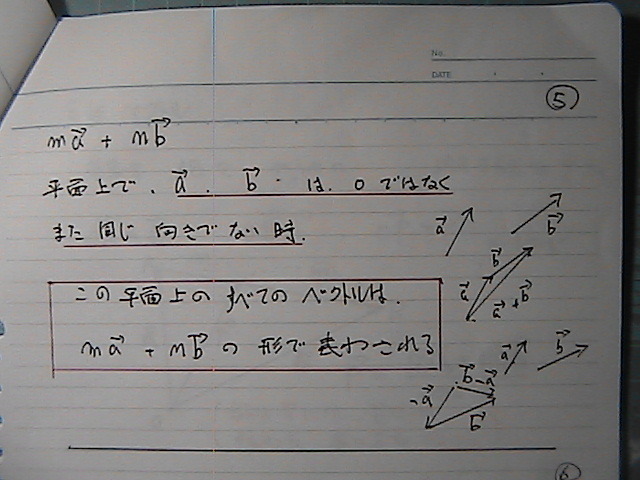 No.
DATE
⑤
ma⃗ + nb⃗
平面上で、a⃗、b⃗は、0ではなく
また同じ向きでない時、
a⃗
b⃗
b⃗
a⃗
a⃗+b⃗
この平面上のすべてのベクトルは、
ma⃗ + nb⃗の形で表わされる
a⃗
b⃗
b⃗-a⃗
-a⃗
b⃗
⑥